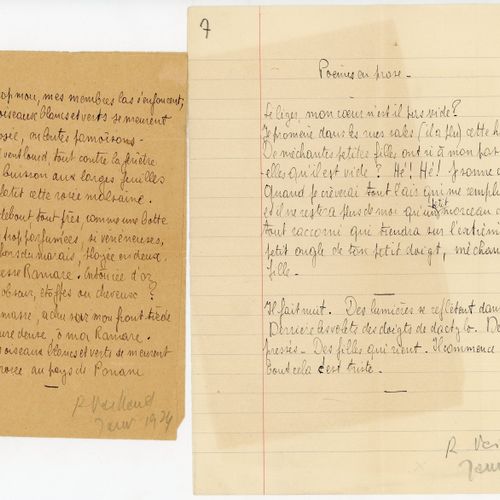 trop mou, mes membres las s'enfoncent,
oiseaux blancs et verts se meurent
rosée, ou lentes pamoisons -
vent lourd, tout contre la fenêtre
buisson aux larges feuilles
cette rosée malsaine.
debout tout fier, comme une botte
trop parfumées, si vénéneuses,
du marais, ployée en deux.
Ramare. d'or
obscur, étoffes ou cheveux ?
mon front tiède
dense, ô ma Ramare.
oiseaux blancs et verts se meurent
rosée au pays de Panani
R Vailland
Janv 1924
7
Poèmes en prose -
Si léger mon cœur n'est-il pas vide ?
Je promène dans les rues sales (il a plu) cette h
De méchantes petites filles ont ri à mon pas
elles qu'il est vide ? Hé ! Hé ! Personne
Quand je crèverai tout l'air qui me rempli
et il ne restera plus de moi qu'un petit morceau
tout racorni qui tiendra sur l'extrém
petit ongle de ton petit doigt, méchan
fille -
Il fait nuit. Des lumières se reflètent dan
Derrière les volets des doigts de dactylo. De
pressés - Des filles qui rient. Il commence
tout cela c'est triste.
R Vai
Janv